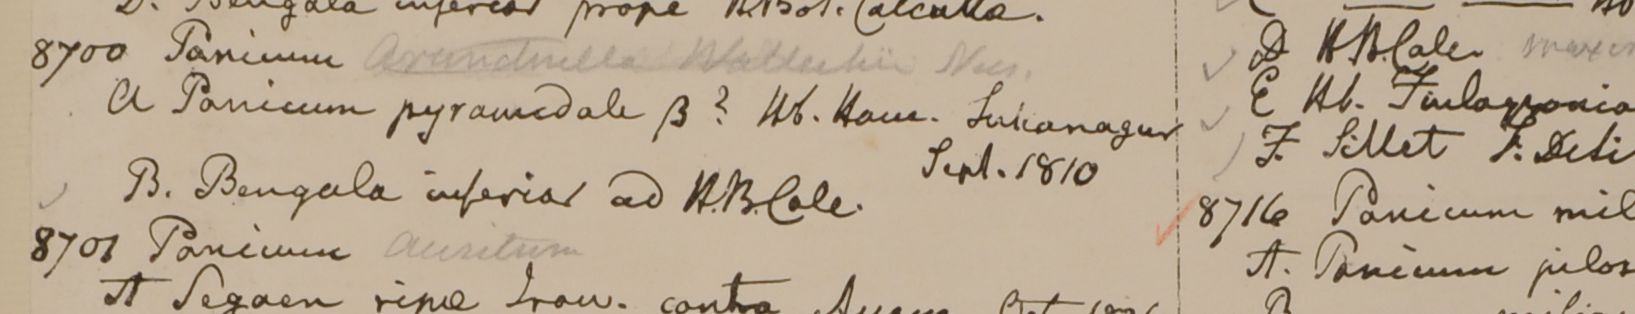 D. Bengala inferior prope H. Bot. Calcutta.
8700 Panicum Arundinella Wallichii Nees.
A Panicum pyramidale β? Hb. Ham. Sukanagur
Sept. 1810
B. Bengala inferior ad H.B.Calc.
8701 Panicum auritum
A Segaen ripae Iraw. contra
D H.B.Calc.
E Hb. Finlaysonia
F. Sillet F. DeSi
8716 Panicum mil
A. Panicum pilos
B